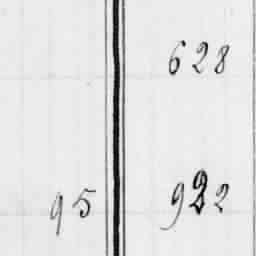 628
95 922